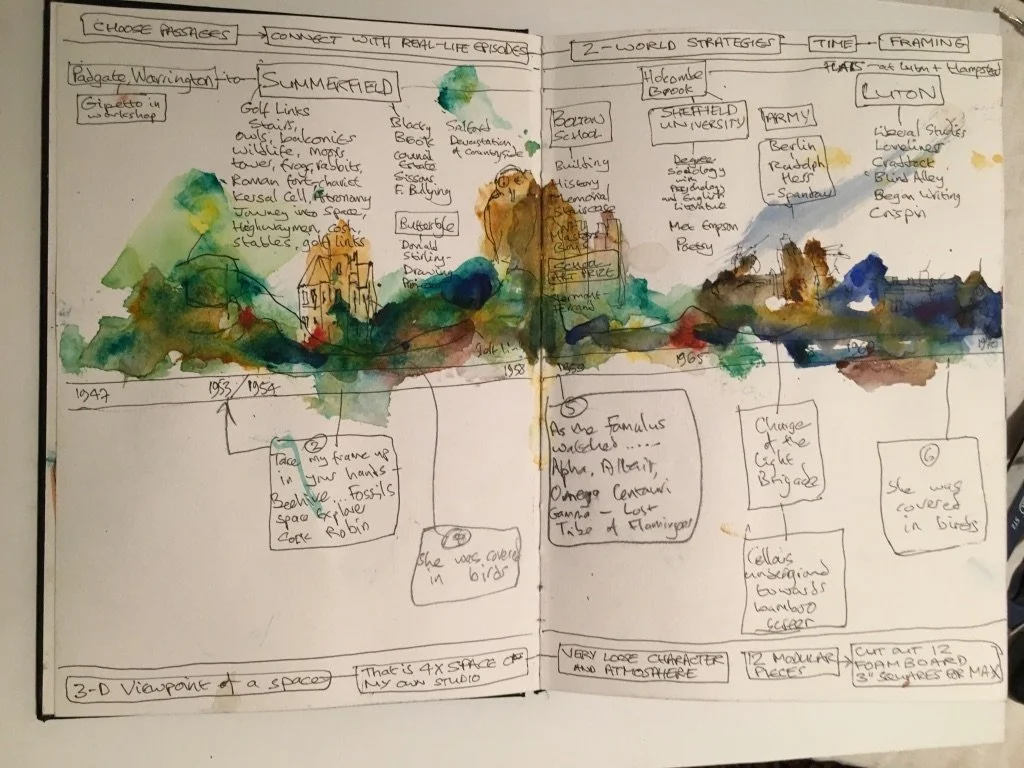 CHOOSE PASSAGES
CONNECT WITH REAL-LIFE EPISODES
Padgate, Warrington
to
SUMMERFIELD
Gipetto in
workshop
Golf Links
Stairs,
Owls, balconies
wildlife, maps
tower, frogs, rabbits,
Roman fort, chariot
Kersal Cell, Astronomy
Journey into Space,
Highwayman, cosh,
stables, golf links
Blacky
Brook
Council
Estate
Bullying
Salford
Devastation
of Countryside
Butterstile
Donald
Stirling-
Drawing
2-WORLD STRATEGIES
TIME
FRAMING
Holcombe
Brook
FLATS - at Luton + Hampstead
BOLTON
SCHOOL
Building
History
Memorial
Staircase
SCHOOL
ART PRIZE
SHEFFIELD
UNIVERSITY
Degree
Sociology
with
Psychology
and English
Literature
Met Empson
Poetry
ARMY
Berlin
Rudolph
Hess
- Spandau
LUTON
Liberal Studies
Loneliness
Craddock
'Blind Alley'
Began Writing
Crispin
1947
1953/1954
1958
1959
1965
1970
2
Take my frame up
in your hands -
Beehive... Fossils
space explorer
Cock Robin
She was covered
in birds
5
As the Famulus
watched ......
Alpha, Altair,
Omega Centauri
Gamma - Lost
Tribe of Flamingoes
Charge
of the
Light
Brigade
Cellars
underground
towards
bamboo
screen
6
She was
covered
in birds
3-D Viewpoint of a space
THAT IS 4X SPACE OF
MY OWN STUDIO
VERY LOOSE CHARACTER
AND ATMOSPHERE
12 MODULAR
PIECES
CUT OUT 12
FOAMBOARD
3" SQUARES FOR MAX